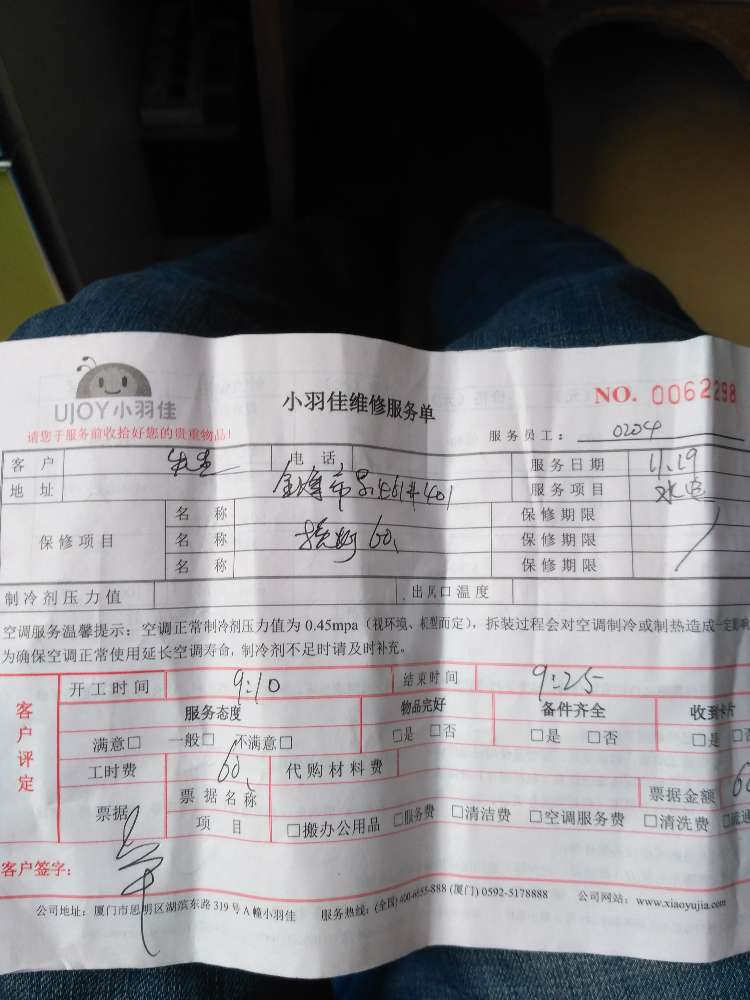 UJOY小羽佳
小羽佳维修服务单
NO. 0062298
请您于服务前收拾好您的贵重物品!
服务员工: 0204
客户 电话 服务日期 11.19
地址 401 服务项目 水电
保修项目 名称 保修期限
名称 60 保修期限
名称 保修期限
制冷剂压力值 出风口温度
空调服务温馨提示:空调正常制冷剂压力值为 0.45mpa(视环境、机型而定),拆装过程会对空调制冷或制热造成一定影响
为确保空调正常使用延长空调寿命,制冷剂不足时请及时补充。
客户评定
开工时间 9:10 结束时间 9:25
服务态度 物品完好 备件齐全 收到卡片
满意□ 一般□ 不满意□ □是 □否 □是 □否 □是 □否
工时费 60 代购材料费
票据 票据名称 票据金额 60
项目 □搬办公用品 □服务费 □清洁费 □空调服务费 □清洗费
客户签字:
公司地址:厦门市思明区湖滨东路 319 号 A 幢小羽佳 服务热线:(全国)400-6655-888 (厦门) 0592-5178888 公司网站:www.xiaoyujia.com